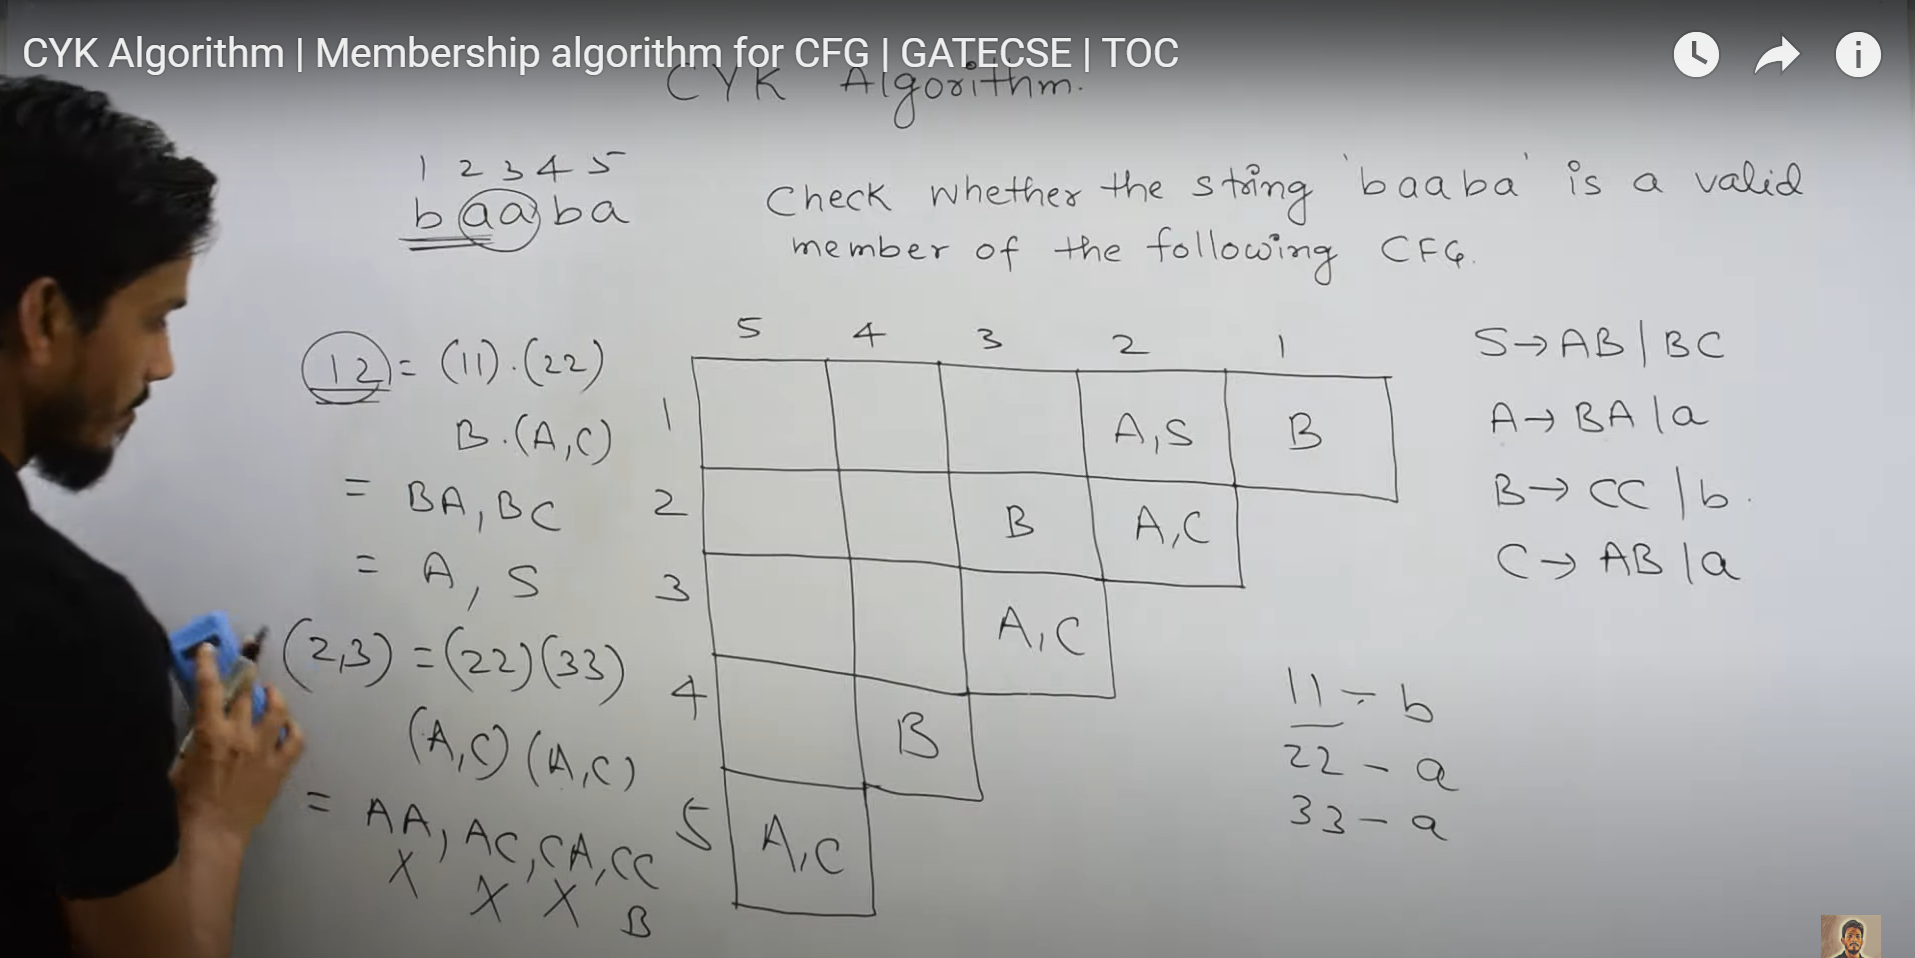 CYK Algorithm | Membership algorithm for CFG | GATECSE | TOC
CYK Algorithm.
1 2 3 4 5
b a a b a
Check whether the string 'baaba' is a valid
member of the following CFG.
12 = (11).(22)
B.(A,C)
= BA, BC
= A, S
(2,3) = (22)(33)
(A,C) (A,C)
= AA, AC, CA, CC
X X X B
5 4 3 2 1
1 A,S B
2 B A,C
3 A,C
4 B
5 A,C
S→AB|BC
A→BA|a
B→CC|b.
C→AB|a
11 - b
22 - a
33 - a